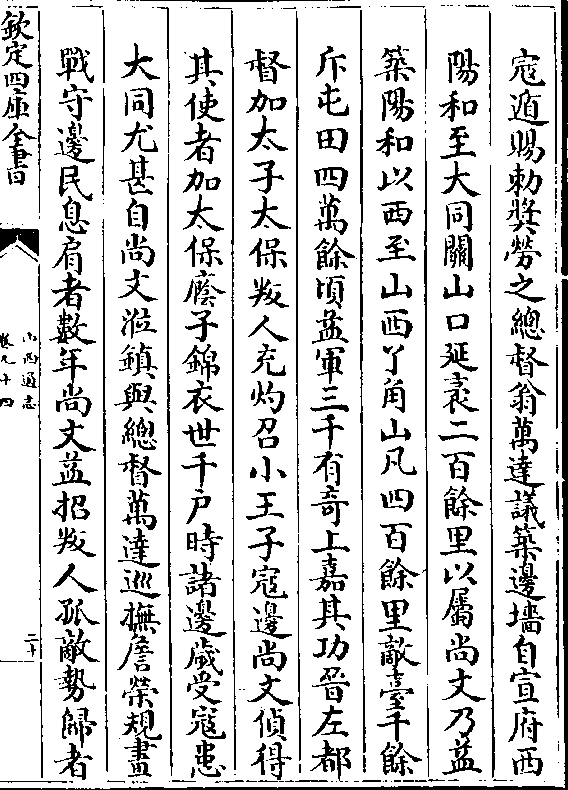 寇遁賜敕奨勞之總督翁萬達議築邊墻自宣府西
陽和至大同關山口延袤二百餘里以屬尚文乃益
築陽和以西至山西丫角山凡四百餘里敵臺千餘
斥屯田四萬餘頃益軍三千有奇上嘉其功晉左都
督加太子太保叛人充灼召小王子寇邊尚文偵得
其使者加太保廕子錦衣世千戶時諸邊歲受寇患
大同尤甚自尚文涖鎮與總督萬達巡撫詹榮規畫
戰守邊民息肩者數年尚文益招叛人孤敵勢歸者
欽定四庫全書
山西通志
卷九十四
二十